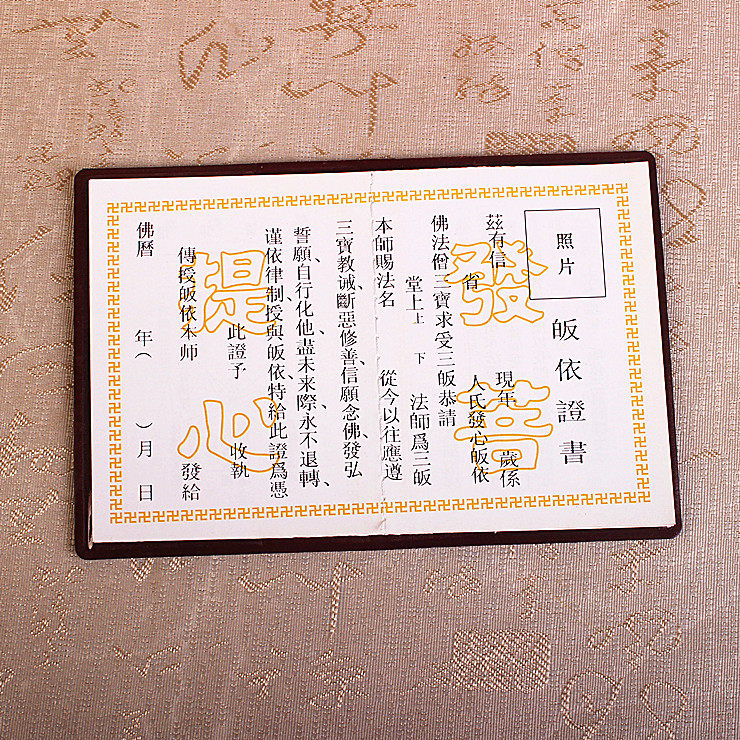 照片
皈依證書
茲有信 現年 歲係
省 人氏發心皈依
佛法僧三寶求受三皈恭請
堂上上 下 法師爲三皈
本師賜法名 從今以往應遵
三寶教诫、斷惡修善、信願念佛、發弘
誓願、自行化他、盡未來際、永不退轉、
謹依律制、授與皈依、特給此證爲憑
此證予 收執
傳授皈依本师 發給
佛曆 年( )月 日
發菩
提心